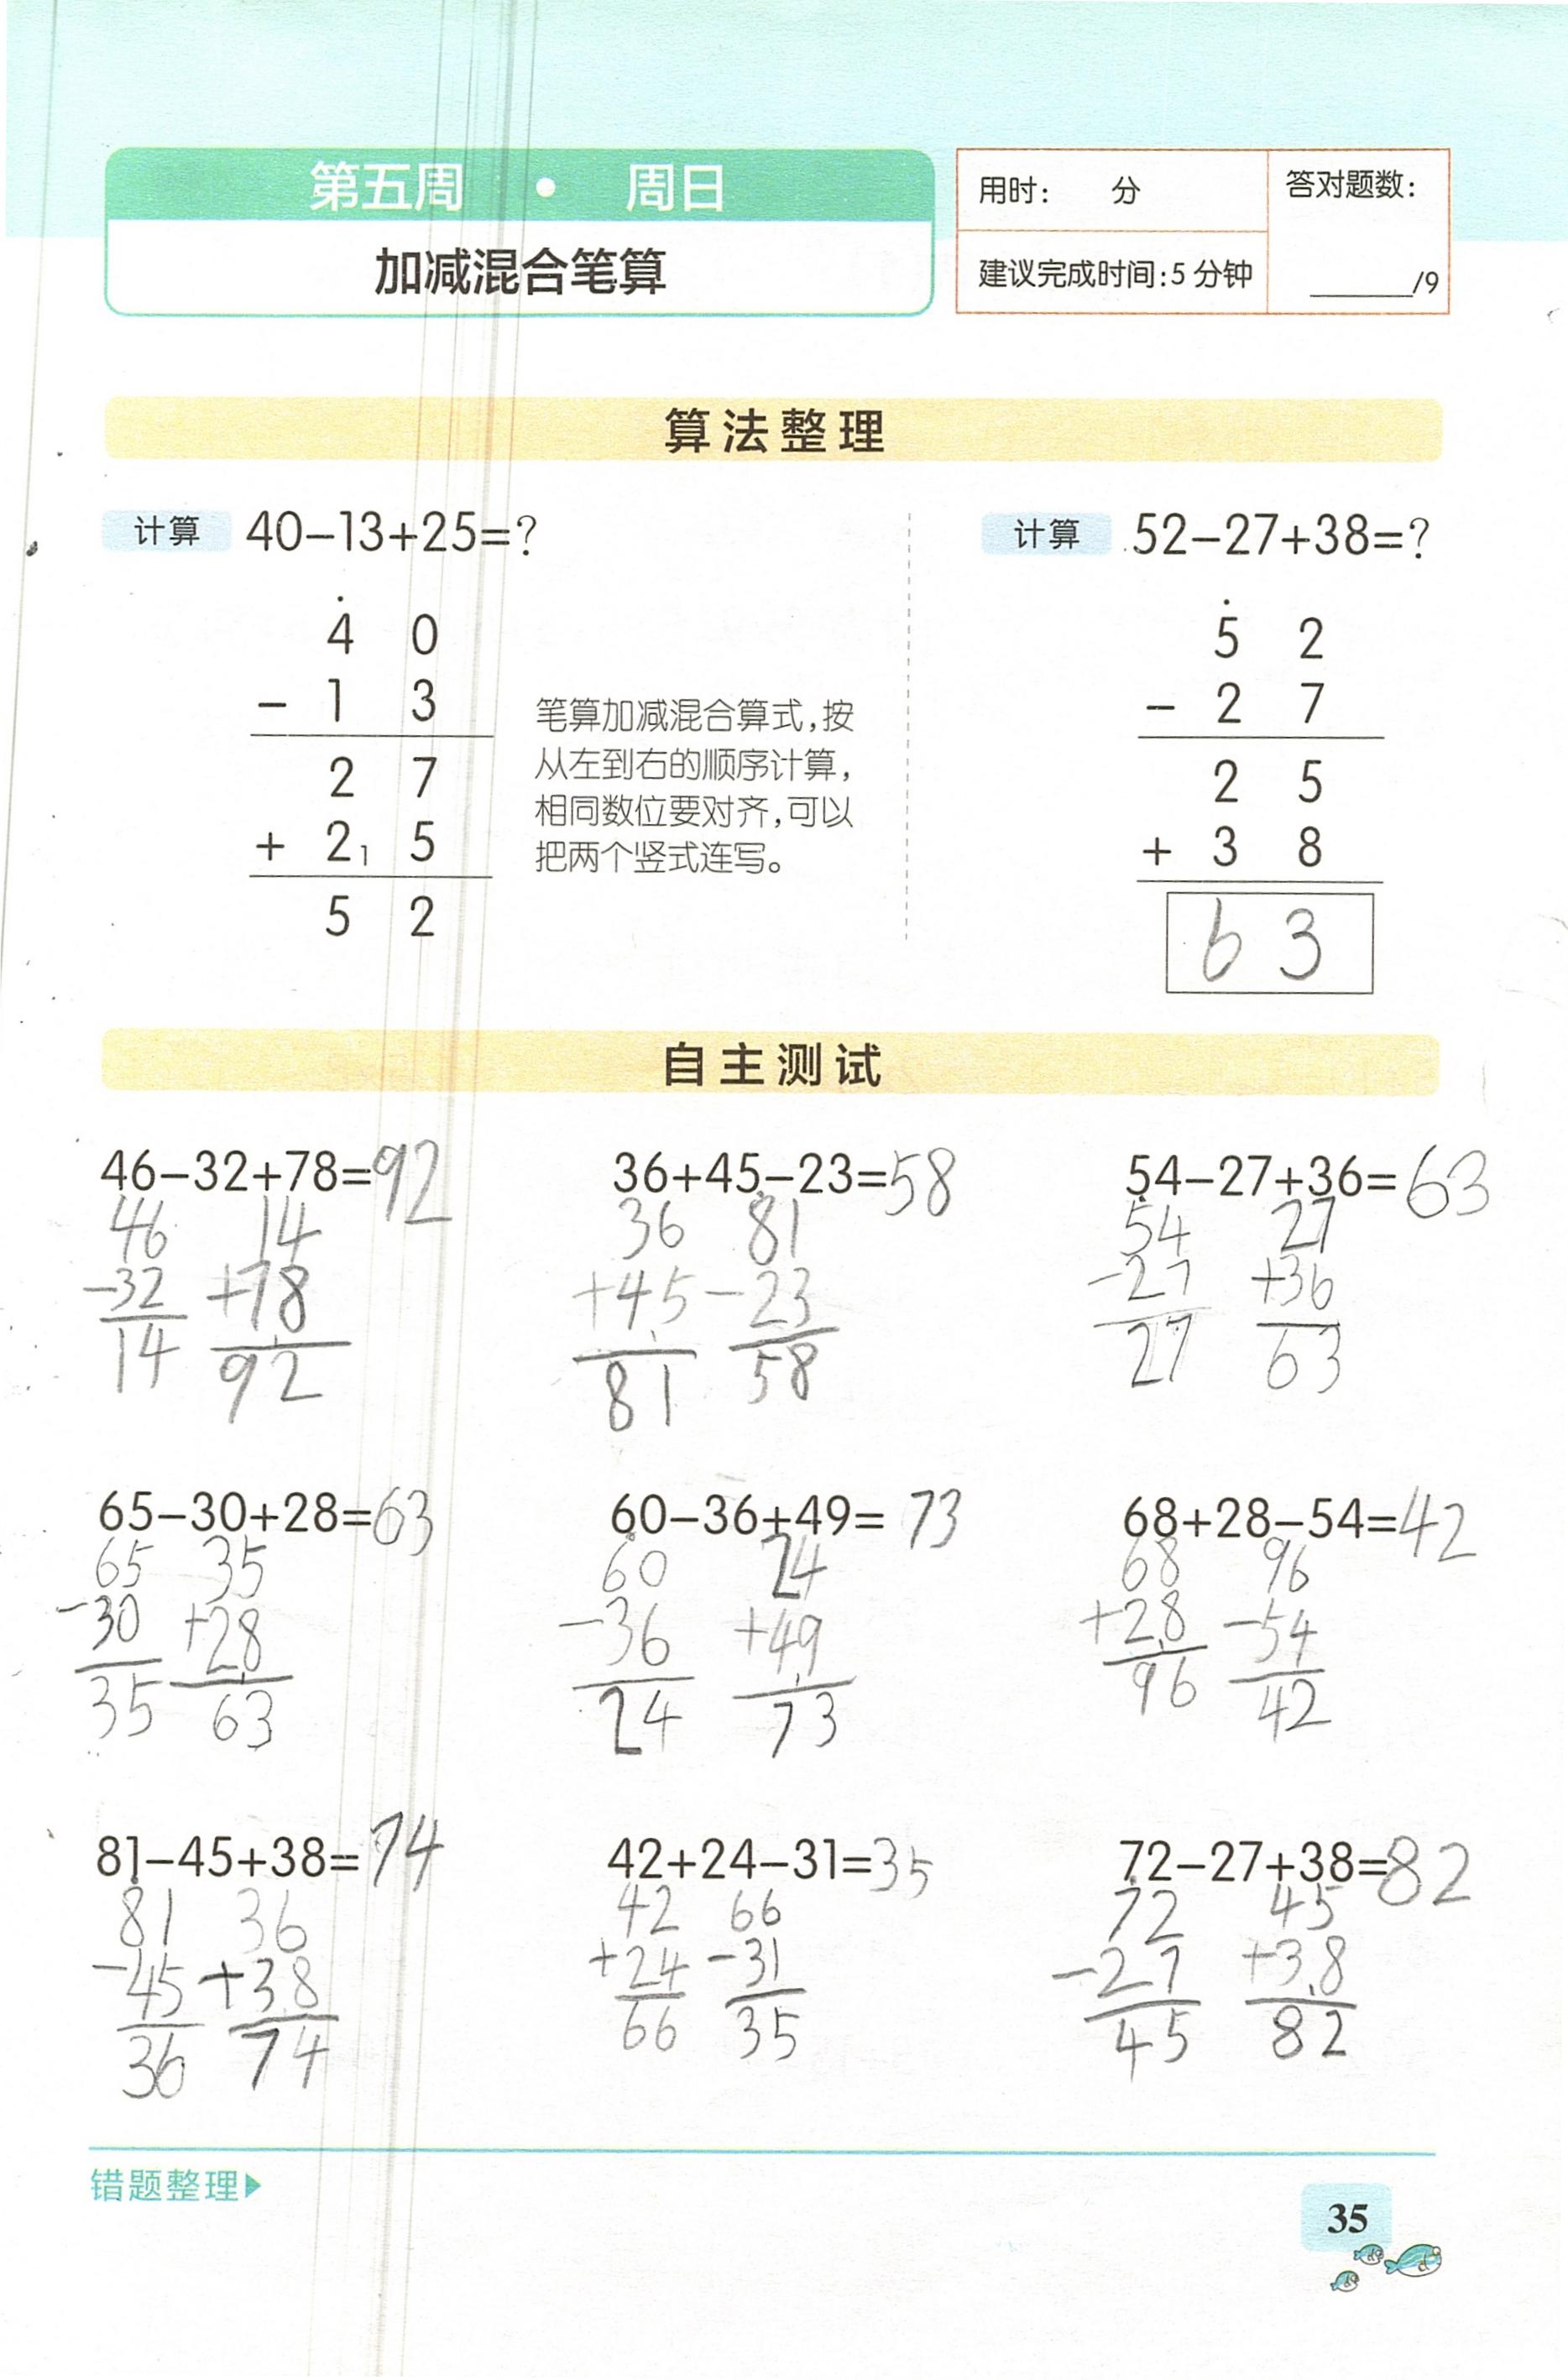 第五周 · 周日
加减混合笔算
用时: 分
建议完成时间:5分钟
答对题数:
/9
算法整理
计算 40-13+25=?
4 0
- 1 3
2 7
+ 2 1 5
5 2
笔算加减混合算式,按
从左到右的顺序计算,
相同数位要对齐,可以
把两个竖式连写。
计算 52-27+38=?
5 2
- 2 7
2 5
+ 3 8
6 3
自主测试
46-32+78=92
46
-32
14
14
+78
92
36+45-23=58
36
+45
81
81
-23
58
54-27+36=63
54
-27
27
27
+36
63
65-30+28=63
65
-30
35
35
+28
63
60-36+49=73
60
-36
24
24
+49
73
68+28-54=42
68
+28
96
96
-54
42
81-45+38=74
81
-45
36
36
+38
74
42+24-31=35
42
+24
66
66
-31
35
72-27+38=82
72
-27
45
45
+38
82
错题整理
35